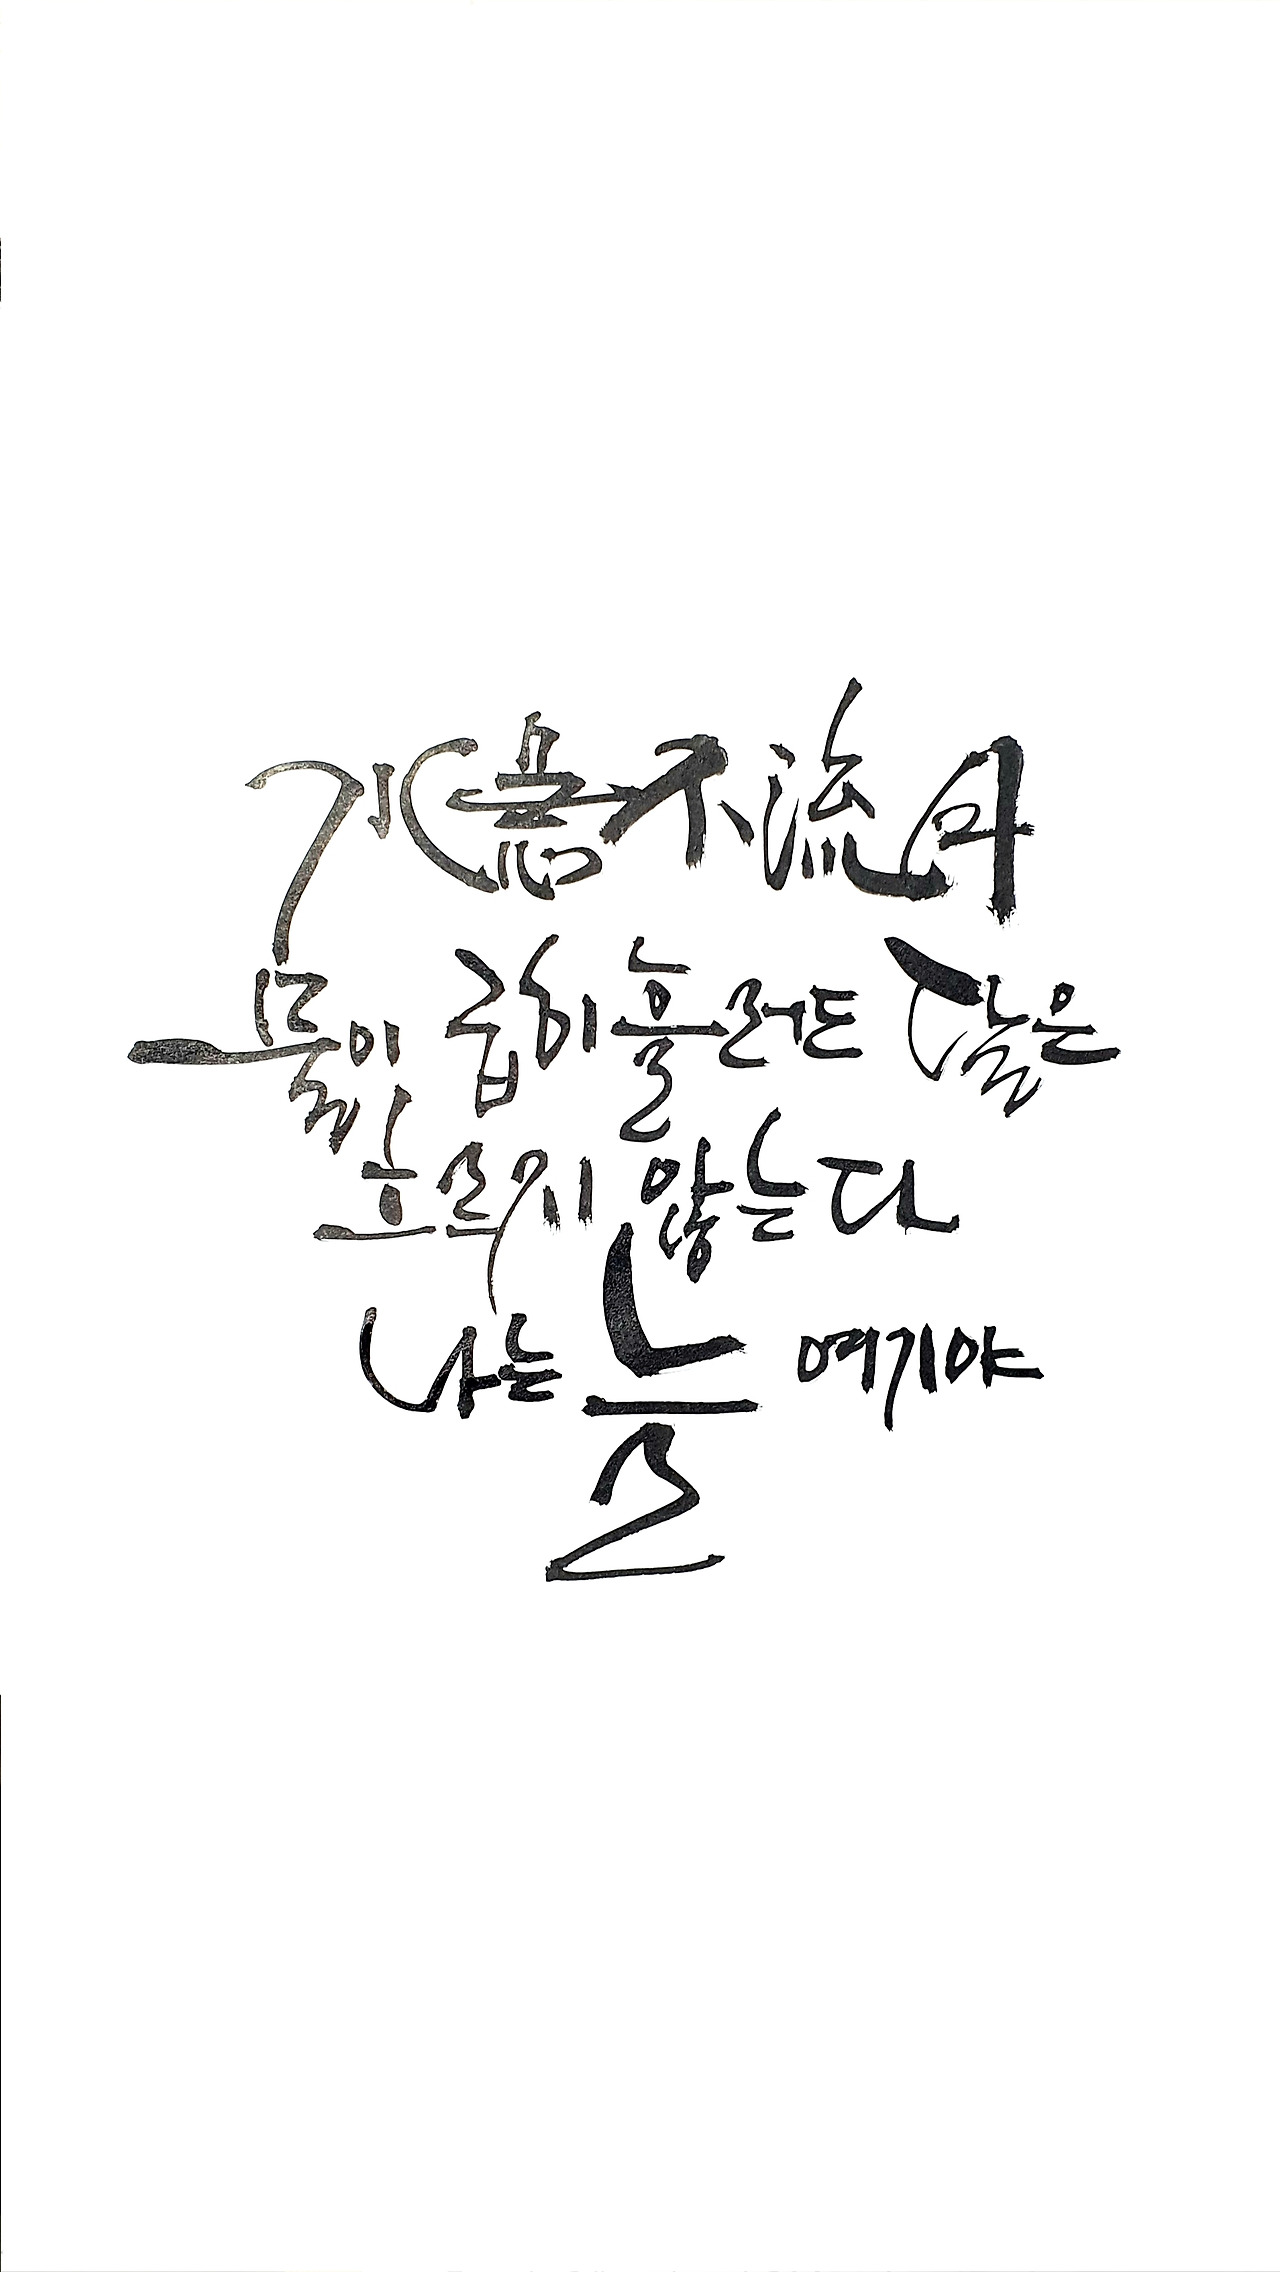 水急不流月
물이 급히 흘러도 달은
흐르지 않는다
나는 늘 여기야